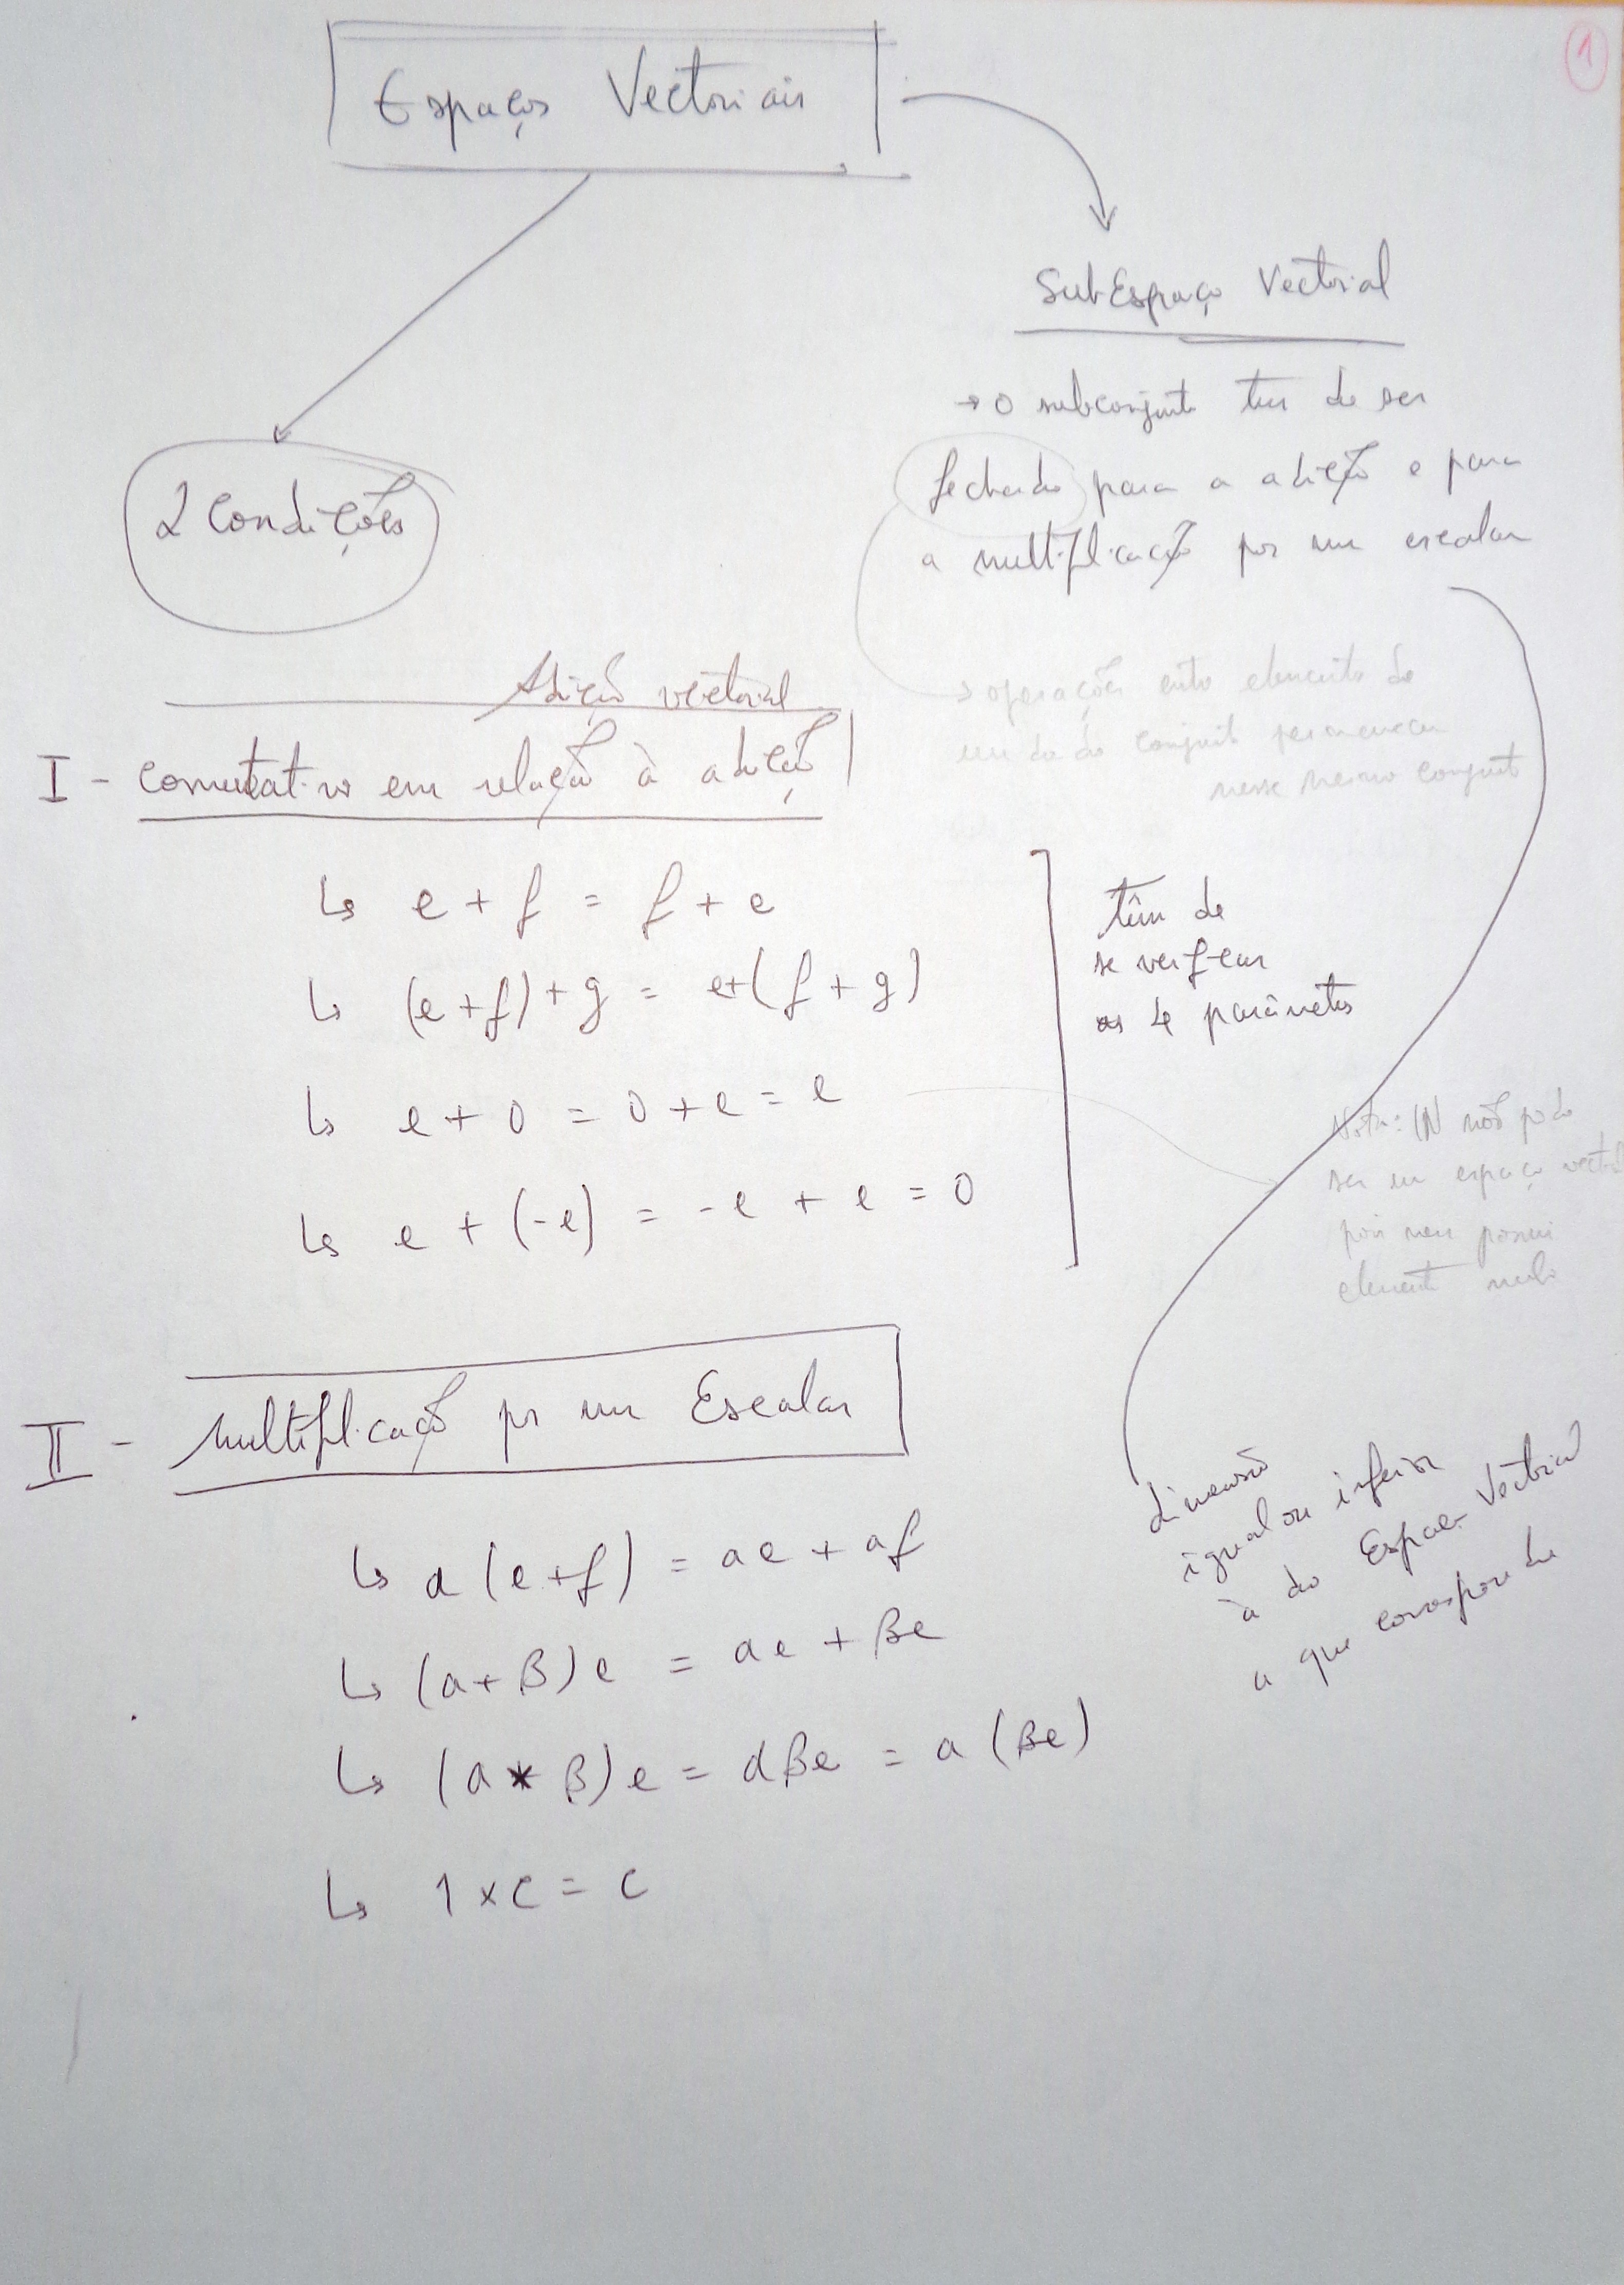 1
Espaços Vectoriais
SubEspaço Vectorial
→ o subconjunto tem de ser
fechado para a adição e para
a multiplicação por um escalar
→ operações entre elementos de
um dado conjunto permanecem
nesse mesmo conjunto
2 Condições
Adição vectorial
I - comutativo em relação à adição
↳ e + f = f + e
↳ (e + f) + g = e+(f + g)
↳ e + 0 = 0 + e = e
↳ e + (-e) = -e + e = 0
têm de
se verificar
os 4 parâmetros
Nota: IN não pode
ser um espaço vectorial
pois nem possui
elemento nulo
II - Multiplicação por um Escalar
↳ a (e+f) = ae + af
↳ (a+B) e = ae + Be
↳ (a * B) e = aBe = a (Be)
↳ 1 x e = e
dimensão
igual ou inferior
à do Espaço Vectorial
a que corresponde